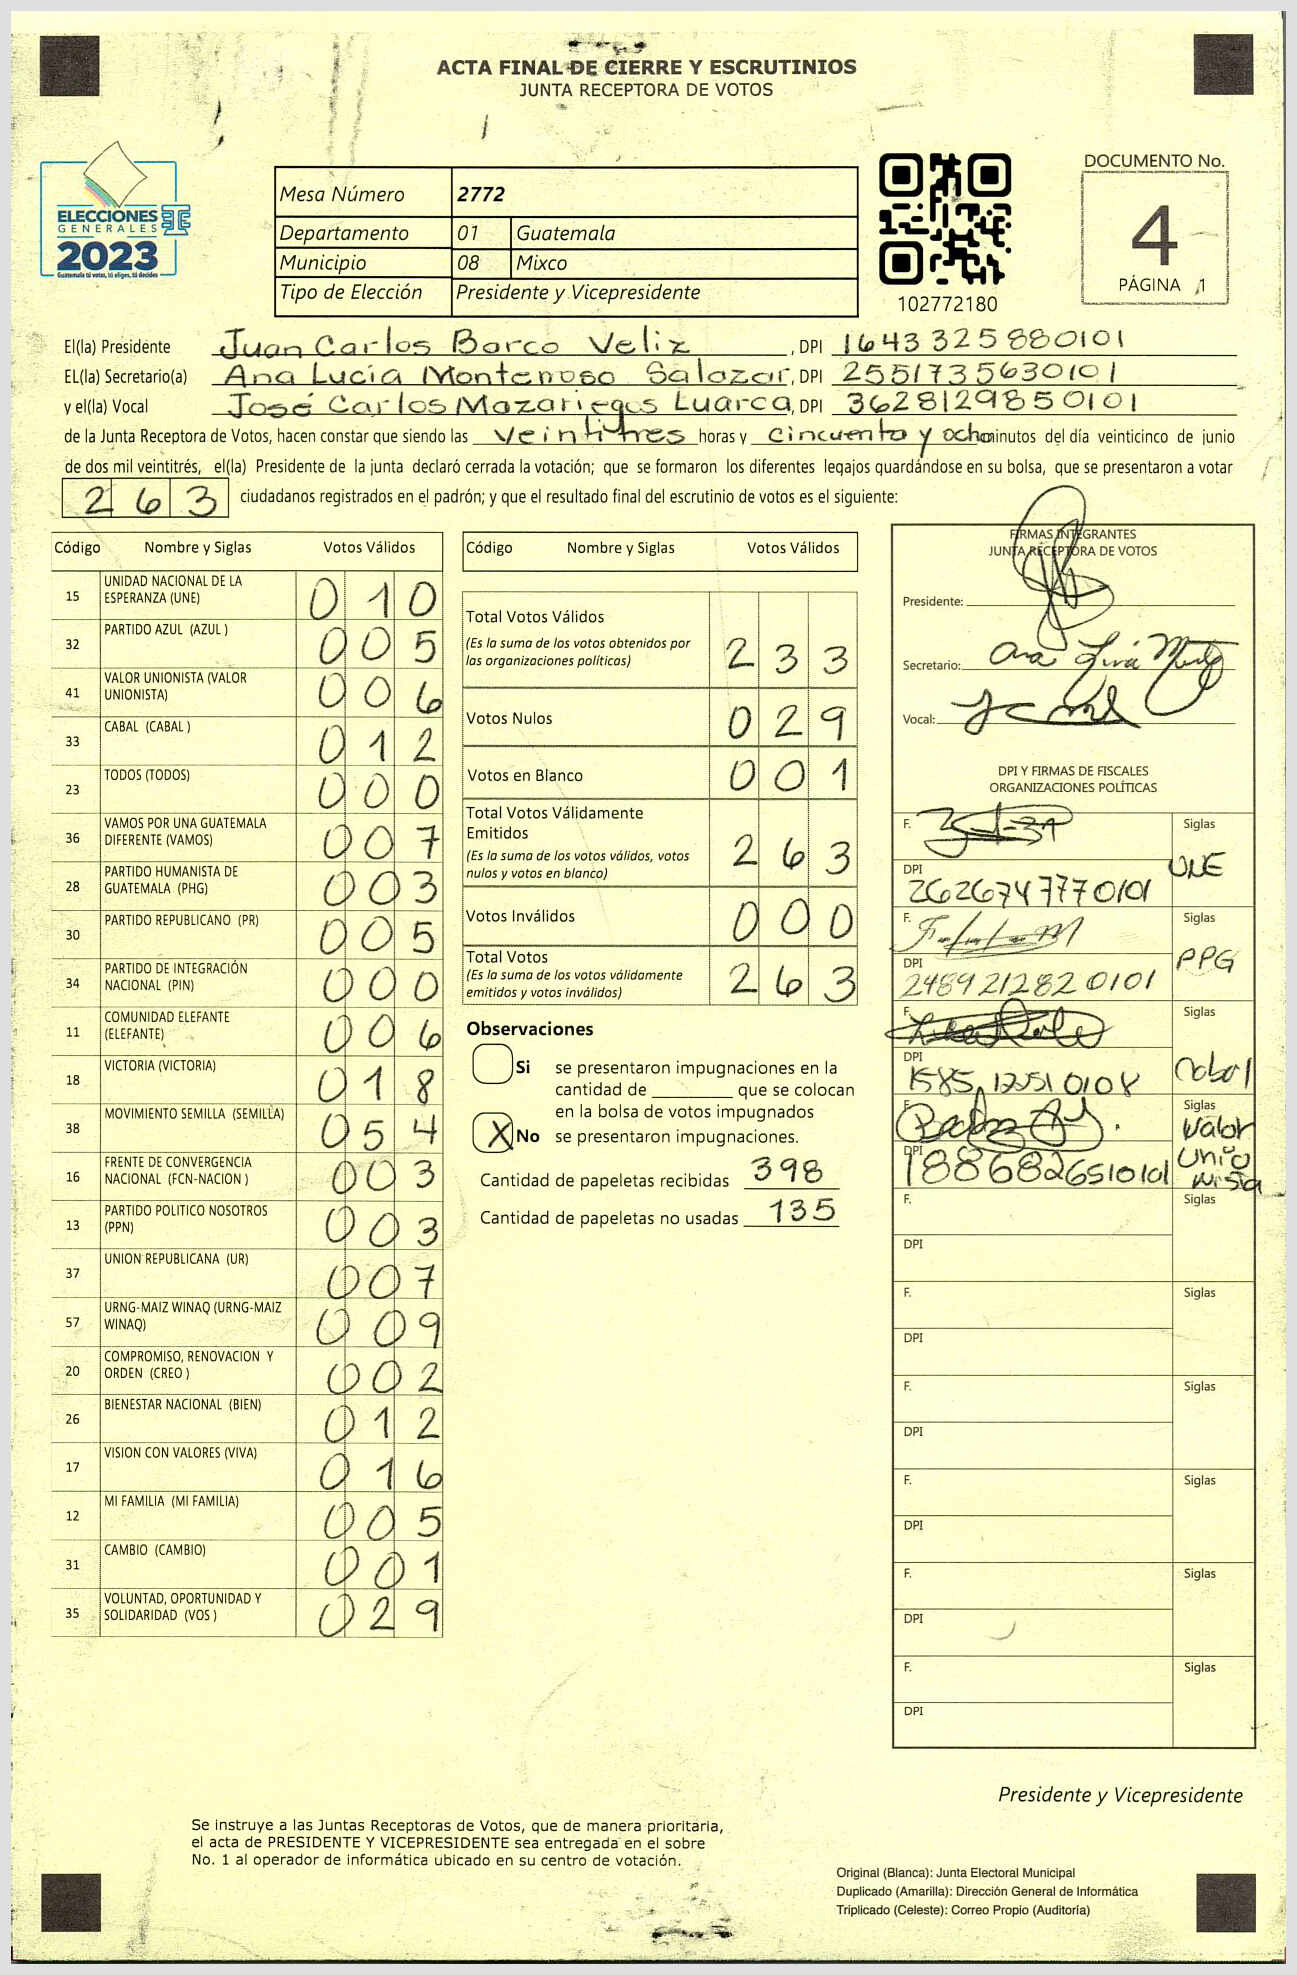 ACTA FINAL DE CIERRE Y ESCRUTINIOS
JUNTA RECEPTORA DE VOTOS
ELECCIONES
GENERALES
2023
Guatemala tú votas, tú eliges, tú decides
Mesa Número 2772
Departamento 01 Guatemala
Municipio 08 Mixco
Tipo de Elección Presidente y Vicepresidente
102772180
DOCUMENTO No.
4
PÁGINA 1
El(la) Presidente Juan Carlos Barco Veliz, DPI 1643325880101
EL(la) Secretario(a) Ana Lucía Montenoso Salazar, DPI 2551735630101
y el(la) Vocal José Carlos Mazariegos Luarca, DPI 3628129850101
de la Junta Receptora de Votos, hacen constar que siendo las veintitres horas y cincuenta y ocho minutos del día veinticinco de junio
de dos mil veintitrés, el(la) Presidente de la junta declaró cerrada la votación; que se formaron los diferentes legajos quardándose en su bolsa, que se presentaron a votar
263 ciudadanos registrados en el padrón; y que el resultado final del escrutinio de votos es el siguiente:
Código Nombre y Siglas Votos Válidos
15 UNIDAD NACIONAL DE LA ESPERANZA (UNE) 010
32 PARTIDO AZUL (AZUL ) 005
41 VALOR UNIONISTA (VALOR UNIONISTA) 006
33 CABAL (CABAL ) 012
23 TODOS (TODOS) 000
36 VAMOS POR UNA GUATEMALA DIFERENTE (VAMOS) 007
28 PARTIDO HUMANISTA DE GUATEMALA (PHG) 003
30 PARTIDO REPUBLICANO (PR) 005
34 PARTIDO DE INTEGRACIÓN NACIONAL (PIN) 000
11 COMUNIDAD ELEFANTE (ELEFANTE) 006
18 VICTORIA (VICTORIA) 018
38 MOVIMIENTO SEMILLA (SEMILLA) 054
16 FRENTE DE CONVERGENCIA NACIONAL (FCN-NACION ) 003
13 PARTIDO POLITICO NOSOTROS (PPN) 003
37 UNION REPUBLICANA (UR) 007
57 URNG-MAIZ WINAQ (URNG-MAIZ WINAQ) 009
20 COMPROMISO, RENOVACION Y ORDEN (CREO ) 002
26 BIENESTAR NACIONAL (BIEN) 012
17 VISION CON VALORES (VIVA) 016
12 MI FAMILIA (MI FAMILIA) 005
31 CAMBIO (CAMBIO) 001
35 VOLUNTAD, OPORTUNIDAD Y SOLIDARIDAD (VOS ) 029
Código Nombre y Siglas Votos Válidos
Total Votos Válidos 233
(Es la suma de los votos obtenidos por
las organizaciones políticas)
Votos Nulos 029
Votos en Blanco 001
Total Votos Válidamente
Emitidos 263
(Es la suma de los votos válidos, votos
nulos y votos en blanco)
Votos Inválidos 000
Total Votos 263
(Es la suma de los votos válidamente
emitidos y votos inválidos)
Observaciones
Si se presentaron impugnaciones en la
cantidad de ________ que se colocan
en la bolsa de votos impugnados
X No se presentaron impugnaciones.
Cantidad de papeletas recibidas 398
Cantidad de papeletas no usadas 135
FIRMAS INTEGRANTES
JUNTA RECEPTORA DE VOTOS
Presidente:
Secretario:
Vocal:
DPI Y FIRMAS DE FISCALES
ORGANIZACIONES POLÍTICAS
F. Siglas
UNE
DPI
2626747770101
F. Siglas
PPG
DPI
2489212820101
F. Siglas
DPI
F. Siglas
Valor
Unio
nista
DPI
1886826510101
F. Siglas
DPI
F. Siglas
DPI
F. Siglas
DPI
F. Siglas
DPI
F. Siglas
DPI
F. Siglas
DPI
Presidente y Vicepresidente
Se instruye a las Juntas Receptoras de Votos, que de manera prioritaria,
el acta de PRESIDENTE Y VICEPRESIDENTE sea entregada en el sobre
No. 1 al operador de informática ubicado en su centro de votación.
Original (Blanca): Junta Electoral Municipal
Duplicado (Amarilla): Dirección General de Informática
Triplicado (Celeste): Correo Propio (Auditoría)